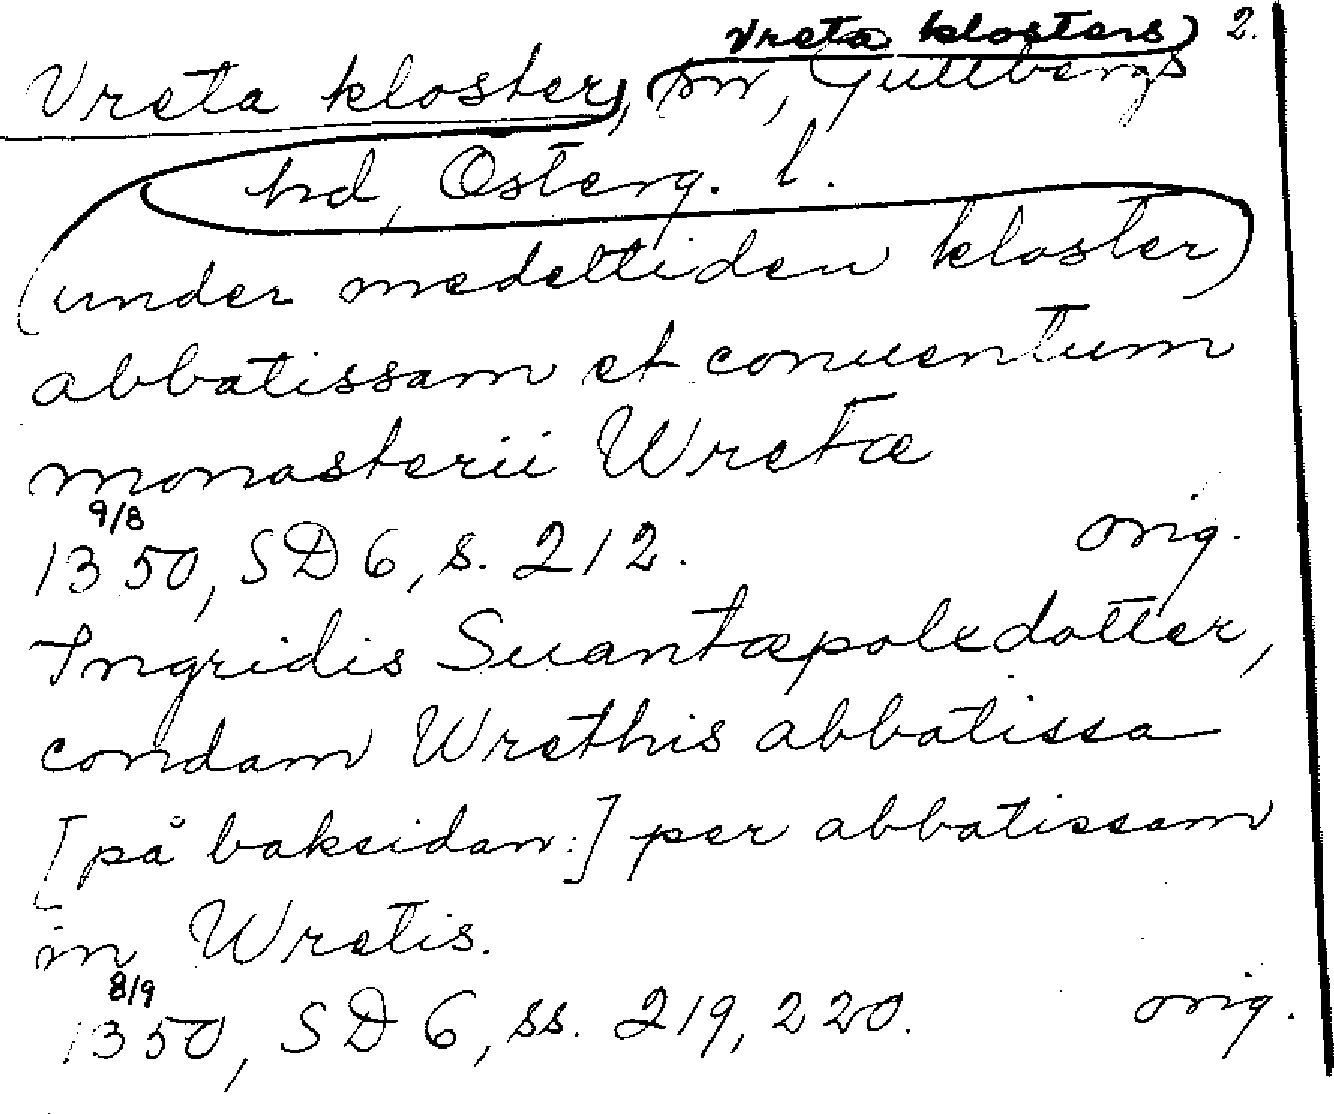 Vreta klosters 2.
Vreta kloster, sn, Gullbergs
hd, Österg. l.
(under medeltiden kloster)
abbatissam et conuentum
monasterii Wretæ
9/8
1350, SD 6, s. 212. orig.
Ingridis Suantæpolxdotter,
condam Wrethis abbatissa
[på baksidan:] per abbatissam
in Wretis.
8/9
1350, SD 6, ss. 219, 220. orig.